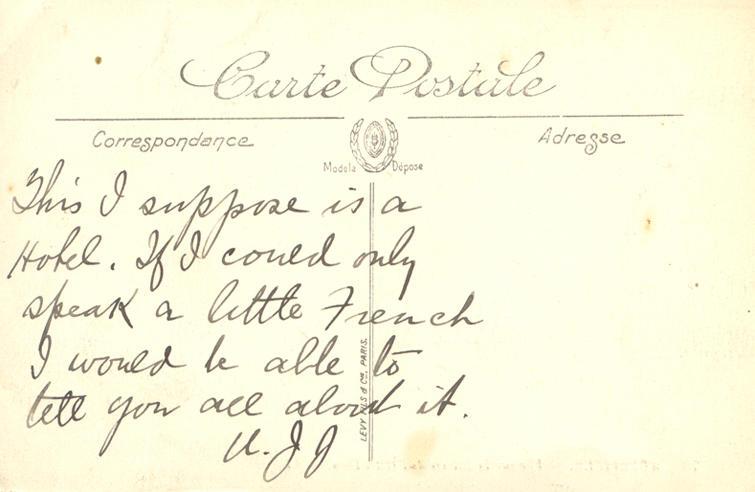 Carte Postale
Correspondance
Adresse
Modèle Déposé
This I suppose is a
Hotel. If I could only
speak a little French
I would be able to
tell you all about it.
JJ
LEVY FILS & Cie, PARIS.